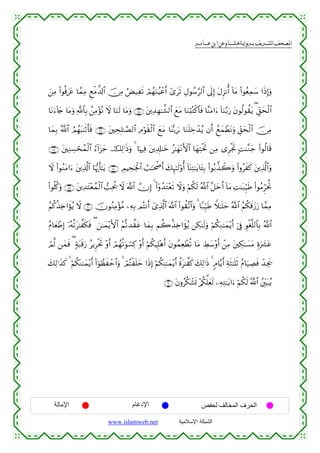 المصحف الشريف برواية هشام عن ابن عامر
وَإِذَا سَمِعُوا۟ مَآ أُنزِلَ إِلَى ٱلرَّسُولِ تَرَىٰٓ أَعْيُنَهُمْ تَفِيضُ مِنَ ٱلدَّمْعِ مِمَّا عَرَفُوا۟ مِنَ
ٱلْحَقِّ ۖ يَقُولُونَ رَبَّنَآ ءَامَنَّا فَٱكْتُبْنَا مَعَ ٱلشَّٰهِدِينَ وَمَا لَنَا لَا نُؤْمِنُ بِٱللَّهِ وَمَا جَآءَنَا
مِنَ ٱلْحَقِّ وَنَطْمَعُ أَن يُدْخِلَنَا رَبُّنَا مَعَ ٱلْقَوْمِ ٱلصَّٰلِحِينَ فَأَثَٰبَهُمُ ٱللَّهُ بِمَا
قَالُوا۟ جَنَّٰتٍ تَجْرِى مِن تَحْتِهَا ٱلْأَنْهَٰرُ خَٰلِدِينَ فِيهَا ۚ وَذَٰلِكَ جَزَآءُ ٱلْمُحْسِنِينَ
وَٱلَّذِينَ كَفَرُوا۟ وَكَذَّبُوا۟ بِـَٔايَٰتِنَآ أُو۟لَٰٓئِكَ أَصْحَٰبُ ٱلْجَحِيمِ يَٰٓأَيُّهَا ٱلَّذِينَ ءَامَنُوا۟ لَا
تُحَرِّمُوا۟ طَيِّبَٰتِ مَآ أَحَلَّ ٱللَّهُ لَكُمْ وَلَا تَعْتَدُوٓا۟ ۚ إِنَّ ٱللَّهَ لَا يُحِبُّ ٱلْمُعْتَدِينَ وَكُلُوا۟
مِمَّا رَزَقَكُمُ ٱللَّهُ حَلَٰلًا طَيِّبًا ۚ وَٱتَّقُوا۟ ٱللَّهَ ٱلَّذِىٓ أَنتُم بِهِۦ مُؤْمِنُونَ لَا يُؤَاخِذُكُمُ
ٱللَّهُ بِٱللَّغْوِ فِىٓ أَيْمَٰنِكُمْ وَلَٰكِن يُؤَاخِذُكُم بِمَا عَقَّدتُّمُ ٱلْأَيْمَٰنَ ۖ فَكَفَّٰرَتُهُۥٓ إِطْعَامُ
عَشَرَةِ مَسَٰكِينَ مِنْ أَوْسَطِ مَا تُطْعِمُونَ أَهْلِيكُمْ أَوْ كِسْوَتُهُمْ أَوْ تَحْرِيرُ رَقَبَةٍ ۖ فَمَن لَّمْ
يَجِدْ فَصِيَامُ ثَلَٰثَةِ أَيَّامٍ ۚ ذَٰلِكَ كَفَّٰرَةُ أَيْمَٰنِكُمْ إِذَا حَلَفْتُمْ ۚ وَٱحْفَظُوٓا۟ أَيْمَٰنَكُمْ ۚ كَذَٰلِكَ
يُبَيِّنُ ٱللَّهُ لَكُمْ ءَايَٰتِهِۦ لَعَلَّكُمْ تَشْكُرُونَ
الحرف المخالف لحفص الإدغام الإمالة
الشبكة الإسلامية www.islamweb.net